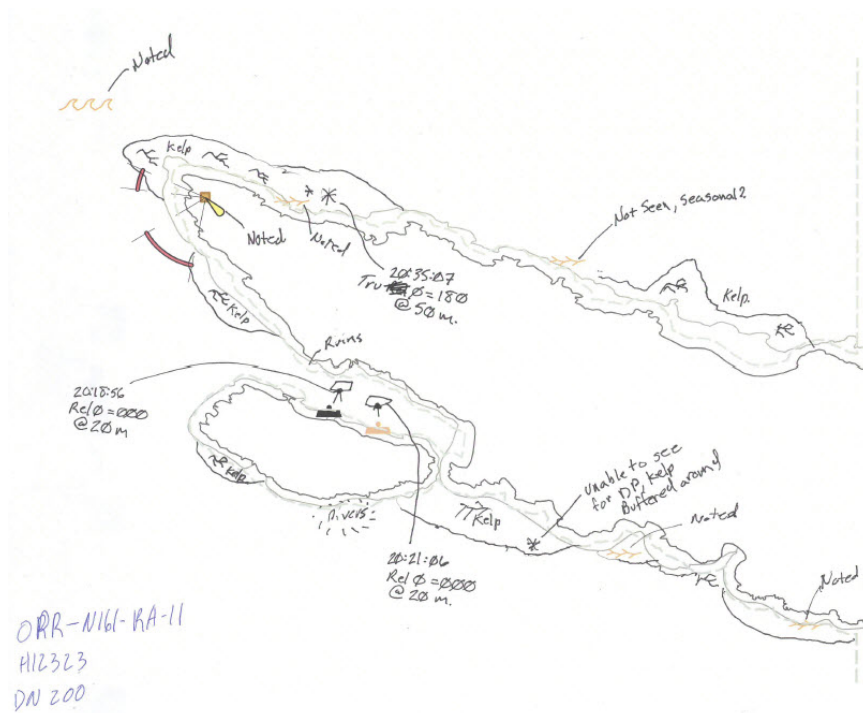 Noted
Kelp
Noted
Noted
Not Seen, seasonal?
20:35:07
Ø = 180
@ 50 m.
Kelp.
Kelp
Ruins
20:18:56
Rel Ø = 000
@ 20 m
Kelp
Divers
Kelp
Unable to see
for DP, Kelp
Buffered around
Noted
20:21:06
Rel Ø = 000
@ 20 m.
Noted
ORR-N161-RA-11
H12323
DN 200